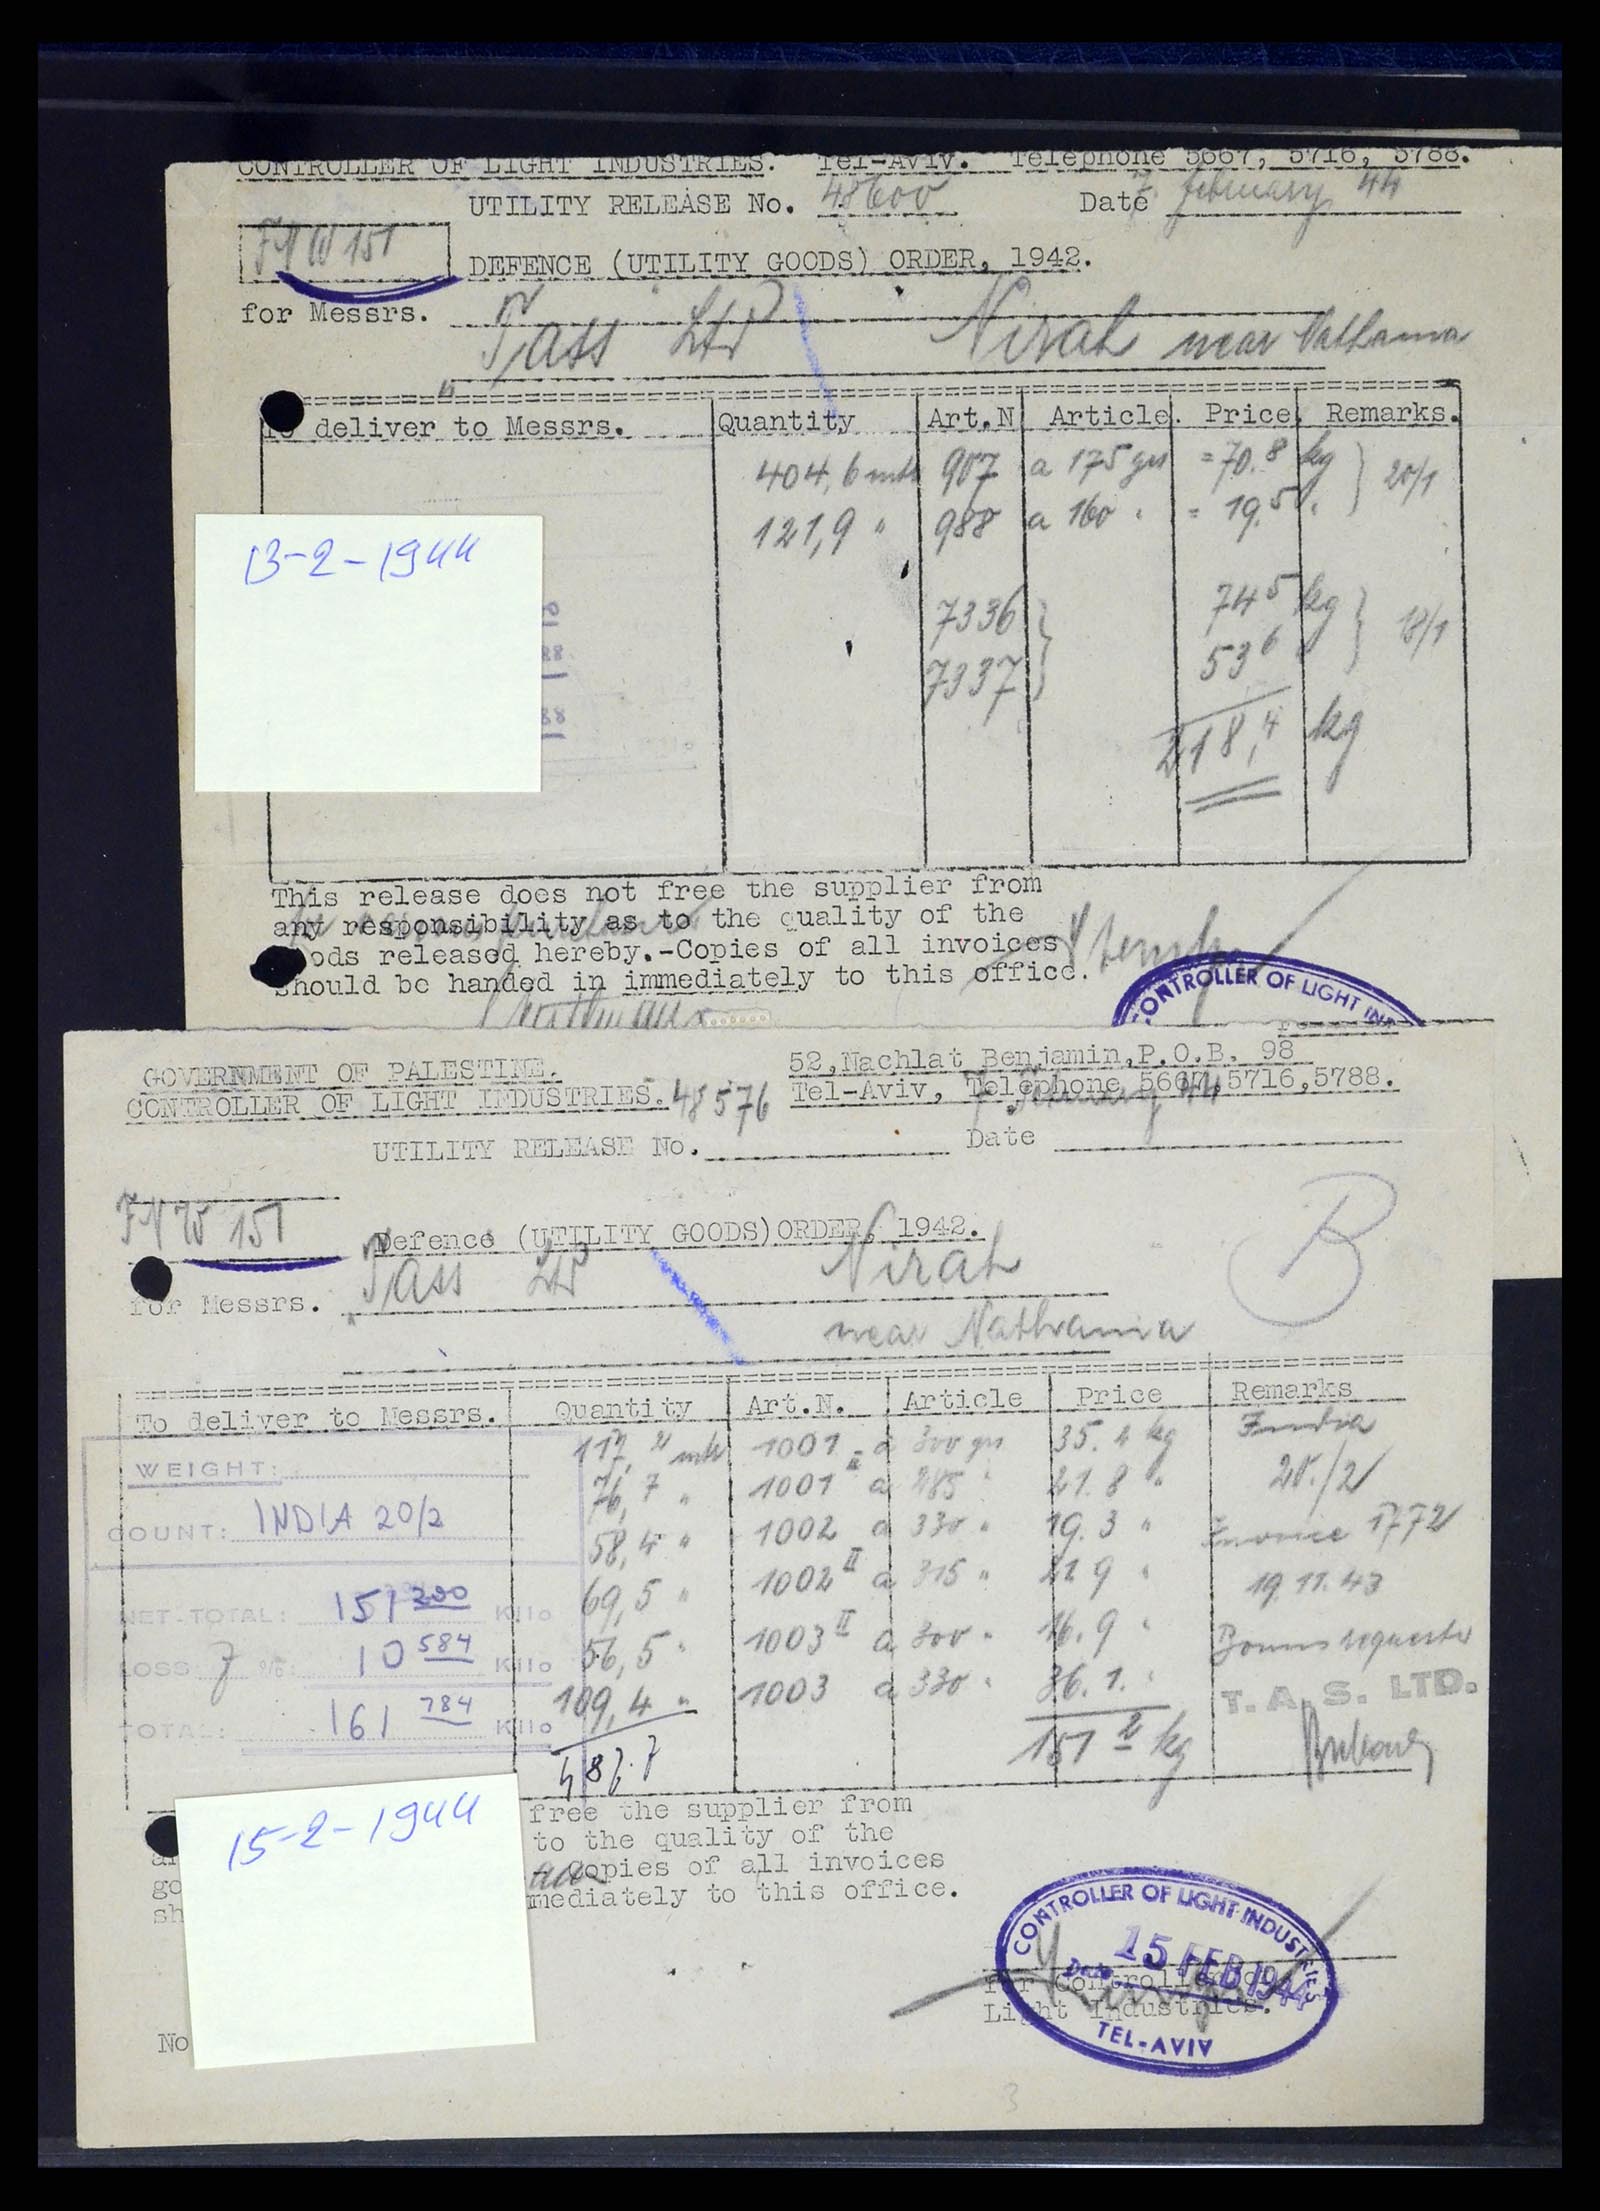 CONTROLLER OF LIGHT INDUSTRIES. Tel-Aviv. Telephone 5667, 5716, 5788.
UTILITY RELEASE No. 48600 Date 7. february 44
FNW 151
DEFENCE (UTILITY GOODS) ORDER, 1942.
for Messrs. Tass Ltd Nirah near Nathania
To deliver to Messrs. Quantity Art.N Article. Price. Remarks.
404,6 mts 907 a 175 grs = 70.8 kg 20/1
121,9 " 988 a 160 " = 19.5 "
13-2-1944
7336 74 5 kg 18/1
7337 53 6
218,4 kg
This release does not free the supplier from
any responsibility as to the quality of the
goods released hereby.-Copies of all invoices
should be handed in immediately to this office.
CONTROLLER OF LIGHT IND
GOVERNMENT OF PALESTINE. 52, Nachlat Benjamin, P.O.B. 98
CONTROLLER OF LIGHT INDUSTRIES. 48576 Tel-Aviv, Telephone 5667, 5716, 5788.
UTILITY RELEASE No. Date 7. February 44
FNW 151
Defence (UTILITY GOODS) ORDER, 1942.
B
for Messrs. Tass Ltd Nirah
near Nathania
To deliver to Messrs. Quantity Art.N. Article Price Remarks
mts 1001 a 300 grs 35. kg India
WEIGHT: 76,7 " 1001 II a 285 " 21.8 " 20/2
COUNT: INDIA 20/2 58,4 " 1002 a 330 " 19.3 " Invoice 1772
69,5 " 1002 II a 315 " 21 9 " 19.11.43
NET-TOTAL: 151 200 Kilo
56,5 " 1003 II a 300 " 16.9 " Bonus
LOSS: 7 %: 10 584 Kilo
109,4 " 1003 a 330 " 36.1. " T.A.S. LTD.
TOTAL: 161 784 Kilo
487.7 151 2 kg
15-2-1944
free the supplier from
to the quality of the
Copies of all invoices
mediately to this office.
go
sh
CONTROLLER OF LIGHT INDUSTRIES
Date 15 FEB 1944
TEL-AVIV
for Controller of
Light Industries.
No
3